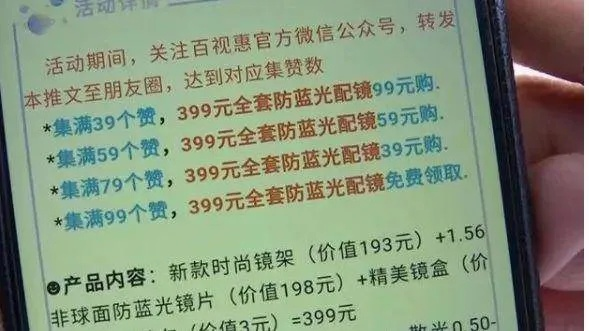 活动详情
活动期间，关注百视惠官方微信公众号，转发
本推文至朋友圈，达到对应集赞数
*集满39个赞，399元全套防蓝光配镜99元购.
*集满59个赞，399元全套防蓝光配镜59元购.
*集满79个赞，399元全套防蓝光配镜39元购.
*集满99个赞，399元全套防蓝光配镜免费领取.
●产品内容：新款时尚镜架（价值193元）+1.56
非球面防蓝光镜片（价值198元）+精美镜盒（价
（价值3元）=399元
散光0.50-